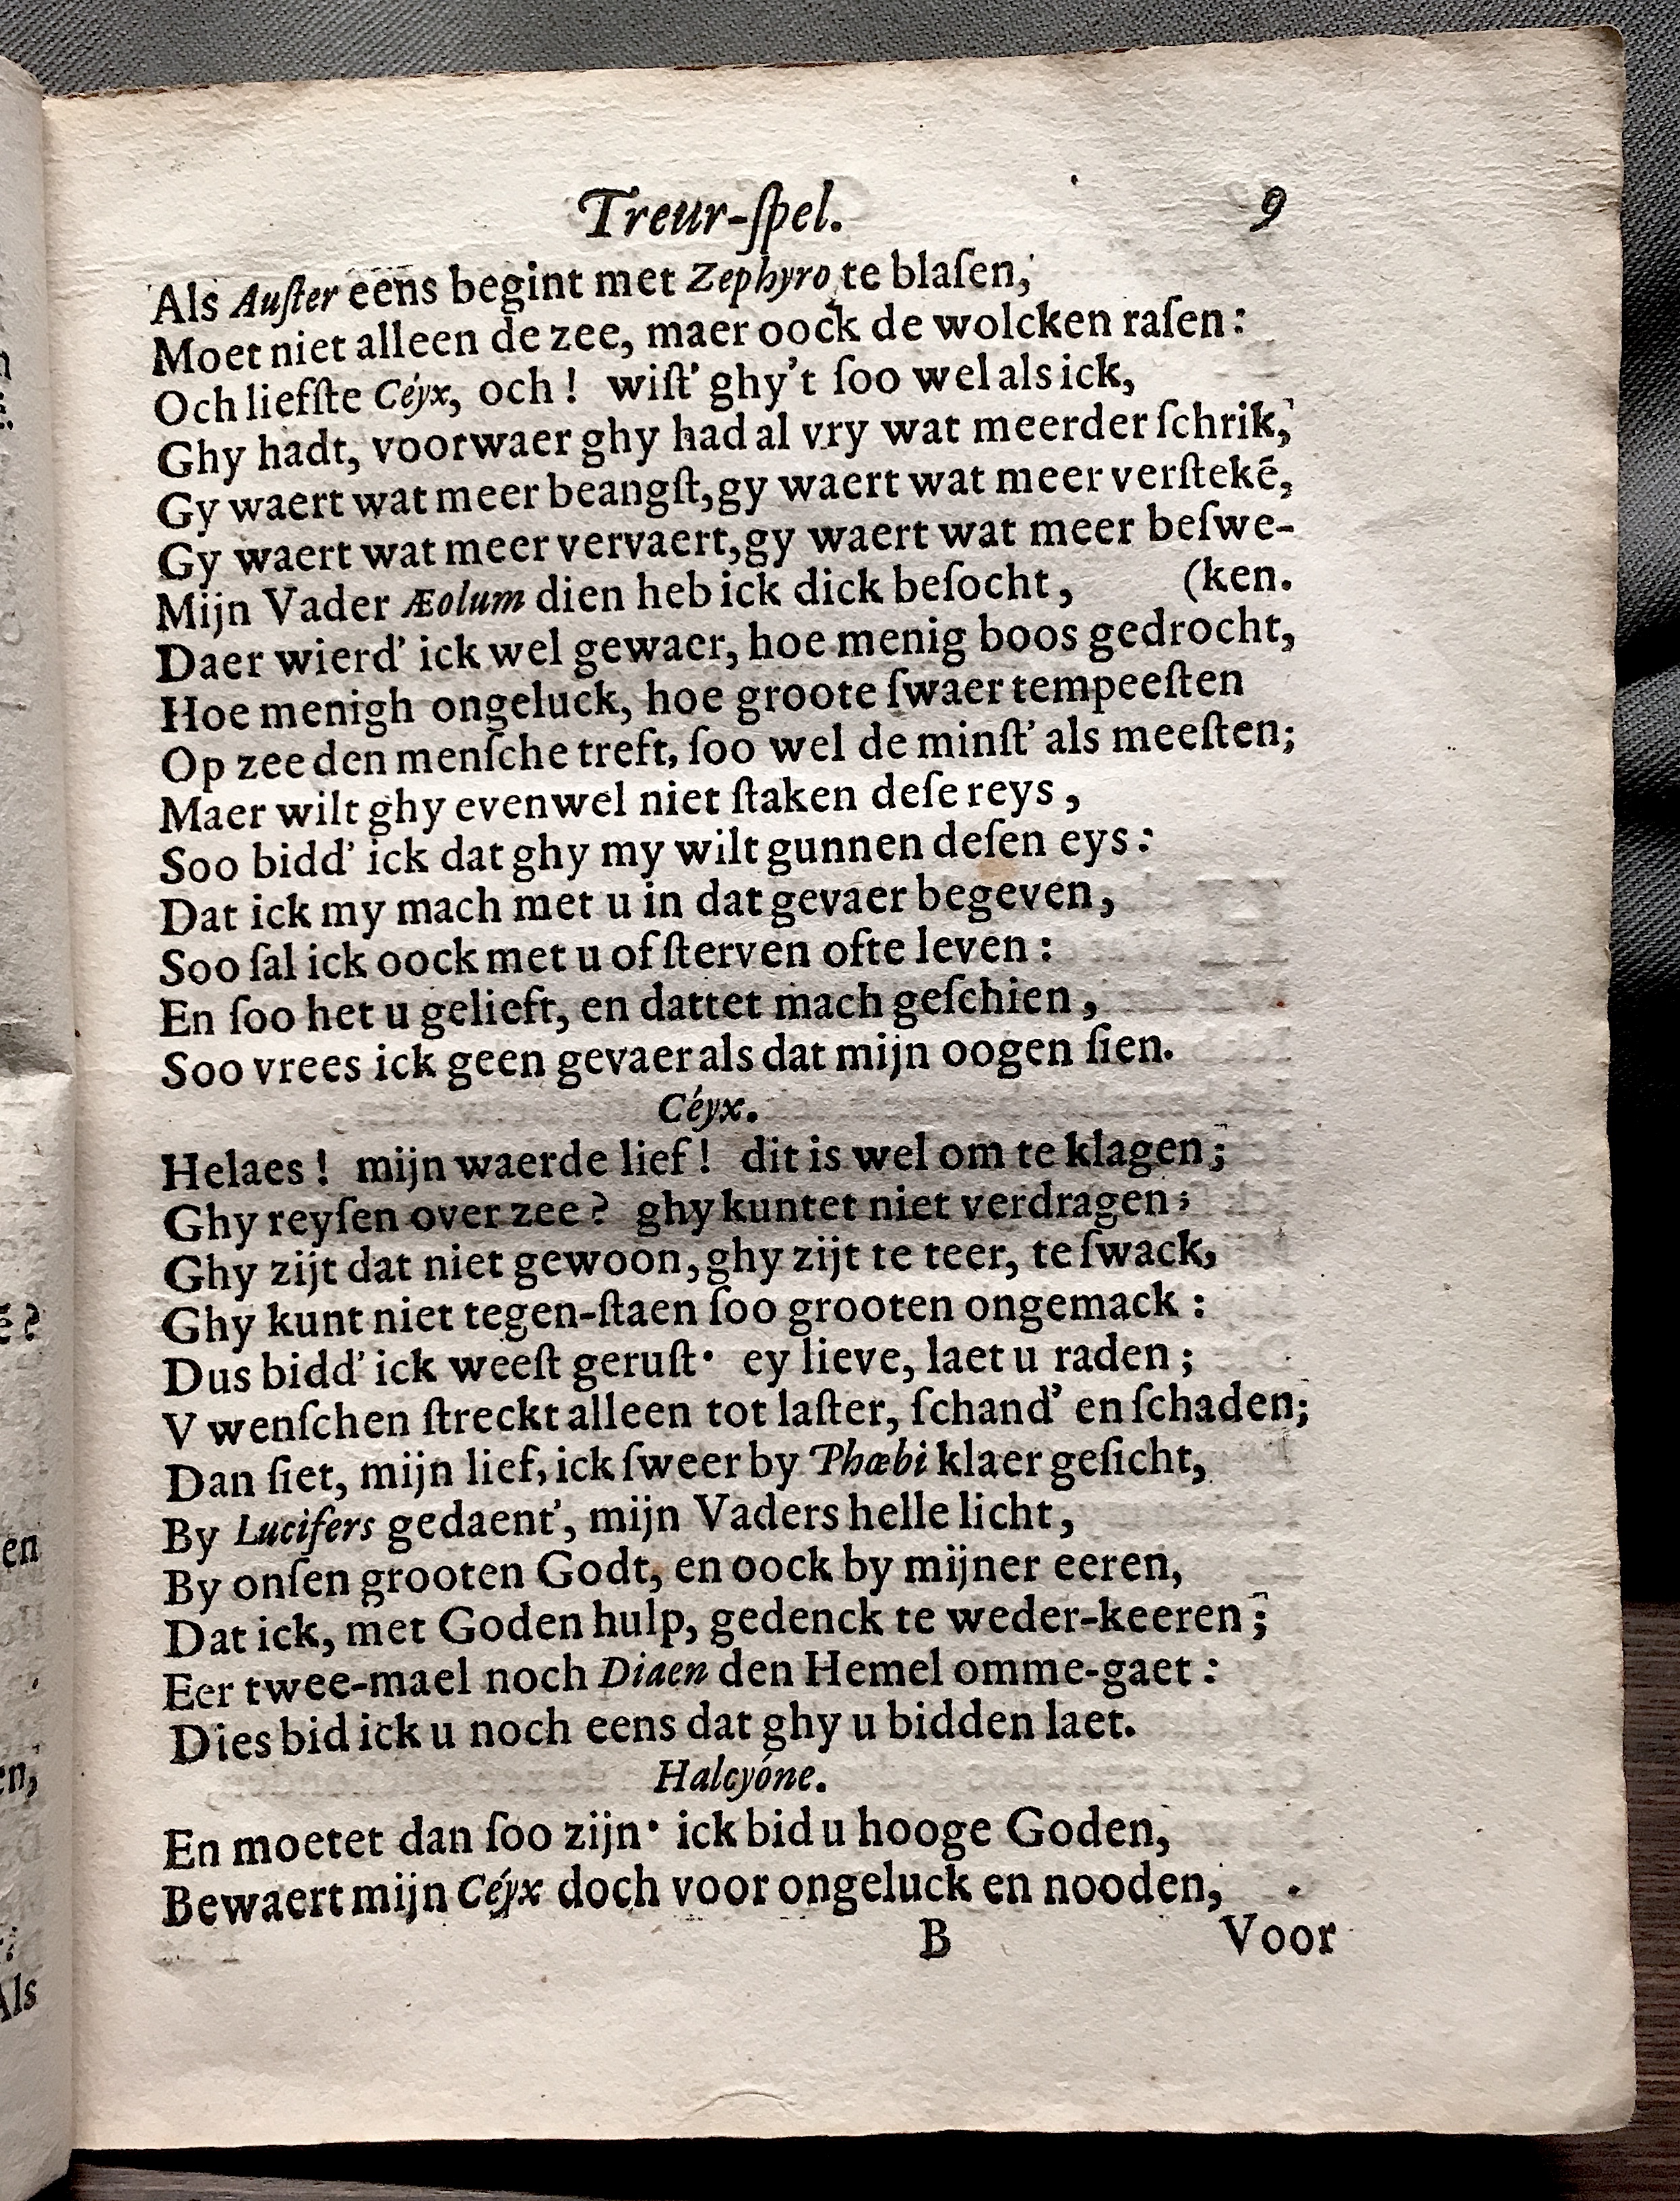 Treur-ſpel. 9
Als Auſter eens begint met Zephyro te blaſen,
Moet niet alleen de zee, maer oock de wolcken raſen:
Och liefſte Céyx, och! wiſt' ghy't ſoo wel als ick,
Ghy hadt, voorwaer ghy had al vry wat meerder ſchrik,
Gy waert wat meer beangſt, gy waert wat meer verſtekē,
Gy waert wat meer vervaert, gy waert wat meer beſwe-
Mijn Vader Æolum dien heb ick dick beſocht, (ken.
Daer wierd' ick wel gewaer, hoe menig boos gedrocht,
Hoe menigh ongeluck, hoe groote ſwaer tempeeſten
Op zee den menſche treft, ſoo wel de minſt' als meeſten;
Maer wilt ghy evenwel niet ſtaken deſe reys,
Soo bidd' ick dat ghy my wilt gunnen deſen eys:
Dat ick my mach met u in dat gevaer begeven,
Soo ſal ick oock met u of ſterven ofte leven:
En ſoo het u gelieft, en dattet mach geſchien,
Soo vrees ick geen gevaer als dat mijn oogen ſien.
Céyx.
Helaes! mijn waerde lief! dit is wel om te klagen;
Ghy reyſen over zee? ghy kuntet niet verdragen;
Ghy zijt dat niet gewoon, ghy zijt te teer, te ſwack,
Ghy kunt niet tegen-ſtaen ſoo grooten ongemack:
Dus bidd' ick weeſt geruſt· ey lieve, laet u raden;
V wenſchen ſtreckt alleen tot laſter, ſchand' en ſchaden;
Dan ſiet, mijn lief, ick ſweer by Phœbi klaer geſicht,
By Lucifers gedaent', mijn Vaders helle licht,
By onſen grooten Godt, en oock by mijner eeren,
Dat ick, met Goden hulp, gedenck te weder-keeren;
Eer twee-mael noch Diaen den Hemel omme-gaet:
Dies bid ick u noch eens dat ghy u bidden laet.
Halcyóne.
En moetet dan ſoo zijn· ick bid u hooge Goden,
Bewaert mijn Céyx doch voor ongeluck en nooden,
B Voor